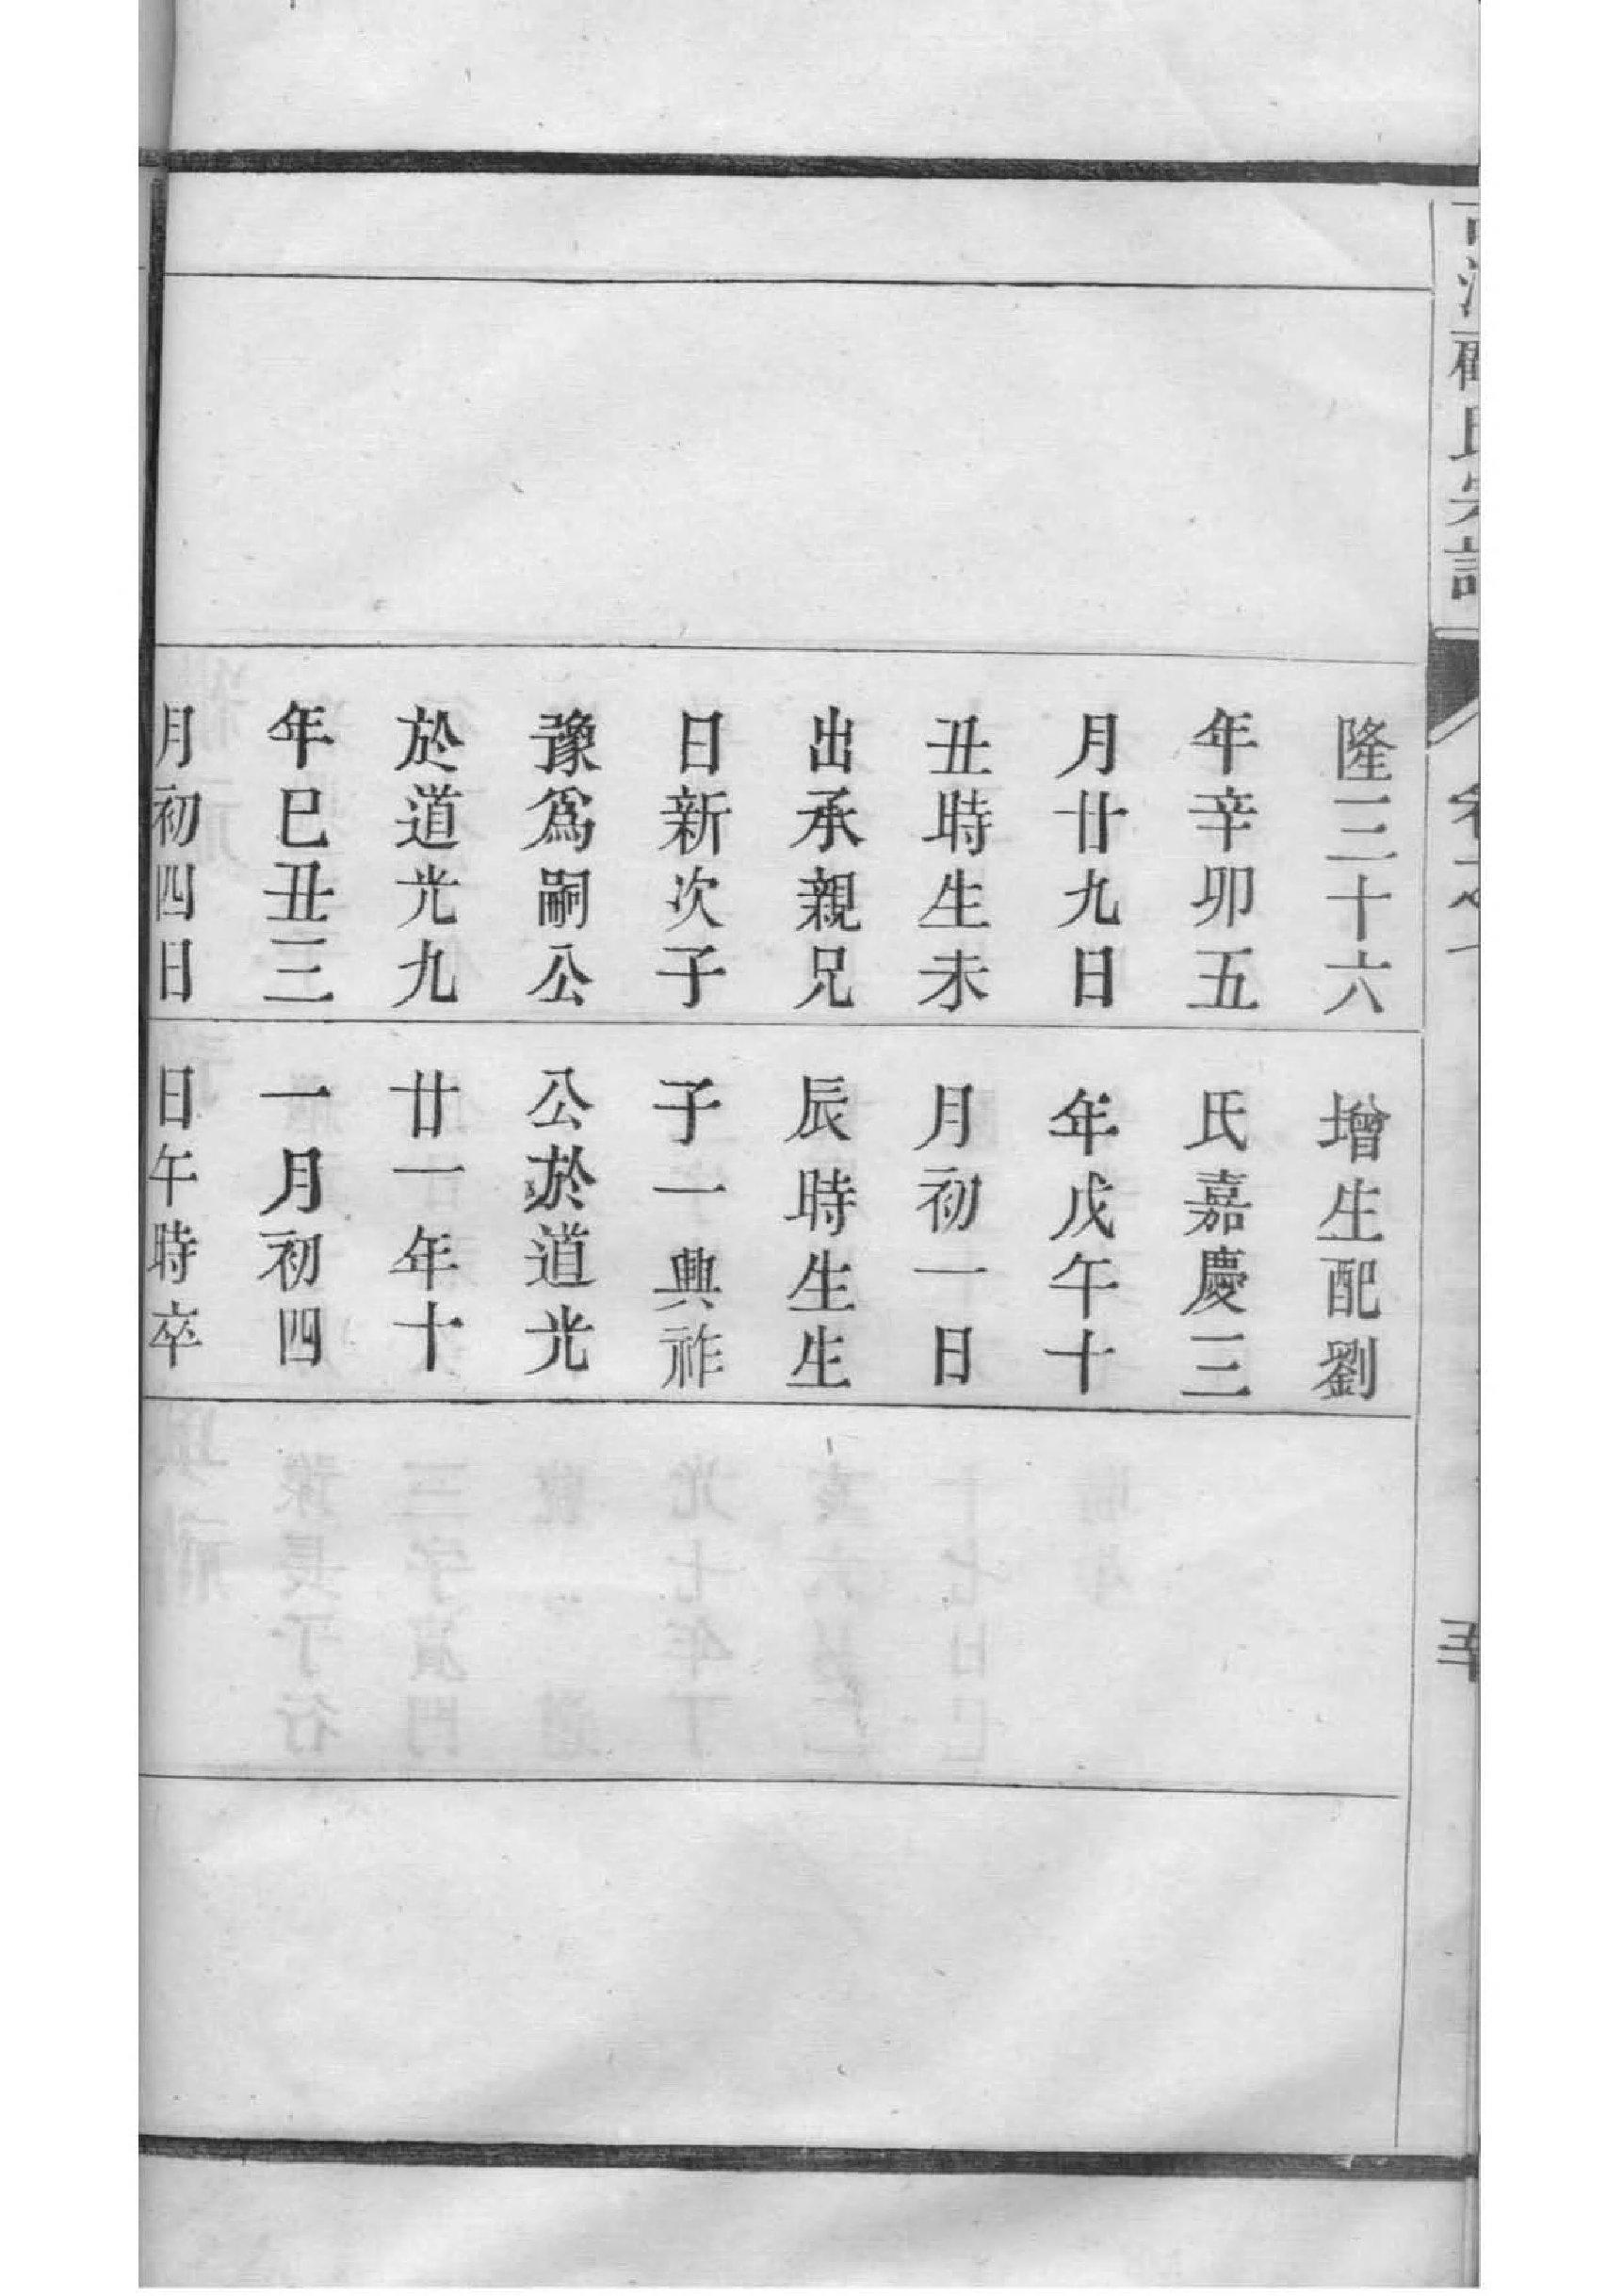 氏宗譜
卷之
隆三十六
年辛卯五
月廿九日
丑時生未
出承親兄
日新次子
豫爲嗣公
於道光九
年巳丑三
月初四日
增生配劉
氏嘉慶三
年戊午十
月初一日
辰時生生
子一興祚
公於道光
廿一年十
一月初四
日午時卒